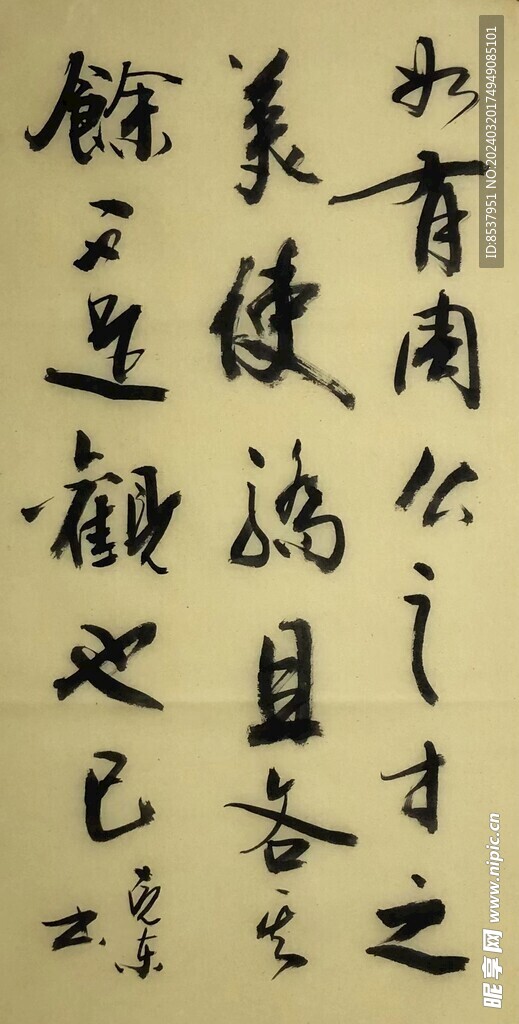 如有周公之才之
美使驕且各其
餘不足觀也已
书
ID:8537951 NO:20240320174949085101
昵享网 www.nipic.cn